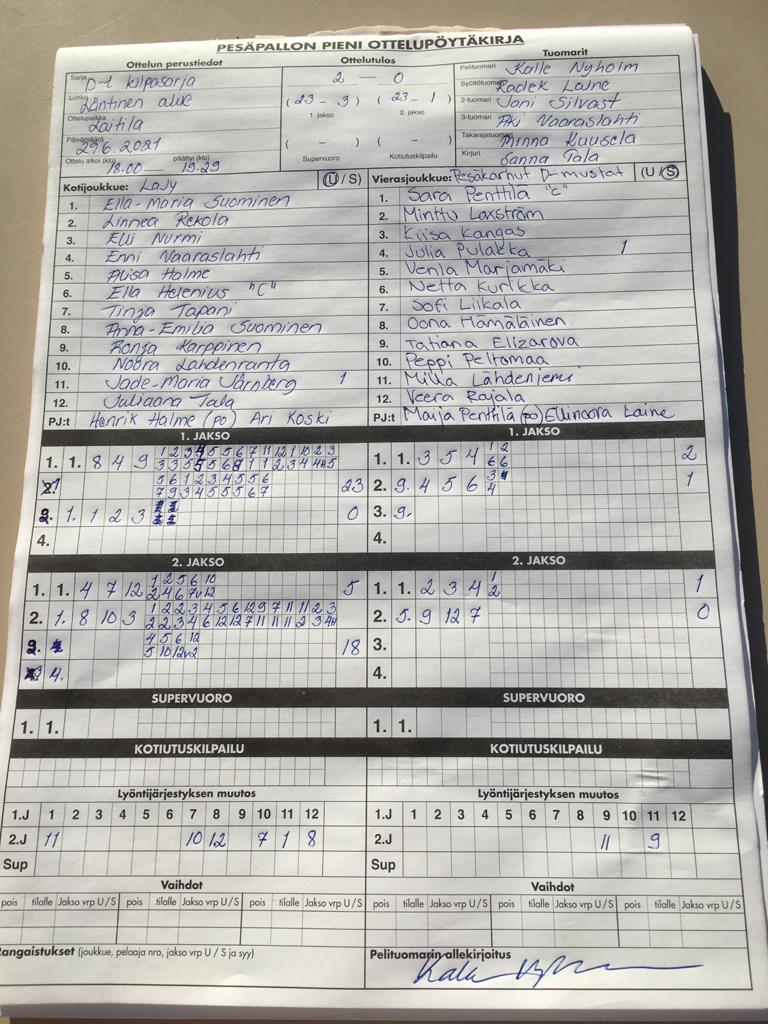 PESÄPALLON PIENI OTTELUPÖYTÄKIRJA
Ottelun perustiedot
Sarja D-t kilpasarja
Lohko Läntinen alue
Ottelupaikka Laitila
Päivämäärä 29.6.2021
Ottelu alkoi (klo) 18.00 — päättyi (klo) 19.29
Ottelutulos
2 — 0
(23 – 3) (23 – 1)
1. jakso 2. jakso
( – ) ( – )
Supervuoro Kotiutuskilpailu
Tuomarit
Pelituomari Kalle Nyholm
Syöttötuomari Radek Laine
2-tuomari Joni Silvast
3-tuomari Aki Vaaraslahti
Takarajatuomari Minna Kuusela
Kirjuri Sanna Tala
Kotijoukkue: LaJy (U / S)
1. Ella-Maria Suominen
2. Linnea Rekola
3. Elli Nurmi
4. Enni Vaaraslahti
5. Alisa Halme
6. Ella Helenius "C"
7. Tinja Tapani
8. Anna-Emilia Suominen
9. Ronja Karppinen
10. Noora Lahdenranta
11. Jade-Maria Järnberg 1
12. Juliaana Tala
PJ:t Henrik Halme (po) Ari Koski
Vierasjoukkue: Pesäkarhut D-mustat (U / S)
1. Sara Penttilä "c"
2. Minttu Laxström
3. Kiisa Kangas
4. Julia Pulakka 1
5. Venla Marjamäki
6. Netta Kurikka
7. Sofi Liikala
8. Oona Hämäläinen
9. Tatiana Elizarova
10. Peppi Peltomaa
11. Milla Lähdeniemi
12. Veera Rajala
PJ:t Maija Penttilä (po) Ellinoora Laine
1. JAKSO
1. 1. 8 4 9
1 2 3 4 5 5 6 7 11 12 1 10 2 3
5 6 1 2 3 4 5 5 6
7 9 3 4 5 5 5 6 7
23
1. 1 2 3 0
4.
1. JAKSO
1. 1. 3 5 4 1 2 2
6 6
2. 9. 4 5 6 1
3. 9.
4.
2. JAKSO
1. 1. 4 7 12 1 2 5 6 10 5
2. 1. 8 10 3 1 2 2 3 4 5 6 12 9 7 11 11 2 3
4 5 6 12
18
4.
2. JAKSO
1. 1. 2 3 4 1 1
2
2. 5. 9 12 7 0
3.
4.
SUPERVUORO
1. 1.
SUPERVUORO
1. 1.
KOTIUTUSKILPAILU
KOTIUTUSKILPAILU
Lyöntijärjestyksen muutos
1.J 1 2 3 4 5 6 7 8 9 10 11 12
2.J 11 10 12 7 1 8
Sup
Lyöntijärjestyksen muutos
1.J 1 2 3 4 5 6 7 8 9 10 11 12
2.J 11 9
Sup
Vaihdot
pois tilalle Jakso vrp U / S pois tilalle Jakso vrp U / S pois tilalle Jakso vrp U / S
Vaihdot
pois tilalle Jakso vrp U / S pois tilalle Jakso vrp U / S pois tilalle Jakso vrp U / S
angaistukset (joukkue, pelaaja nro, jakso vrp U / S ja syy)
Pelituomarin allekirjoitus